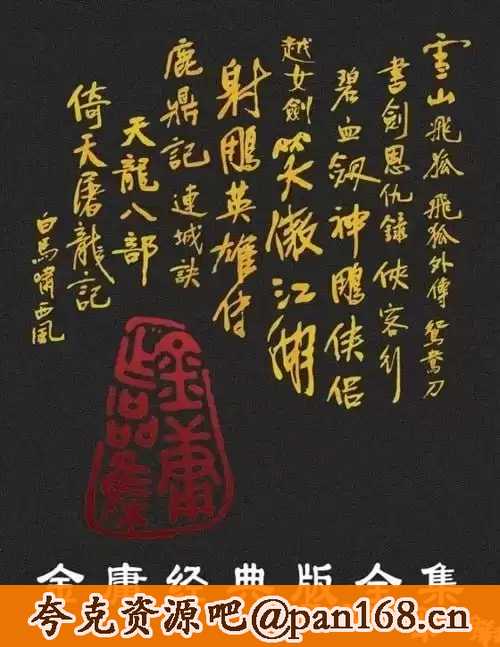 雪山飛狐 飛狐外傳 鴛鴦刀
書劍恩仇錄 俠客行
碧血劔 神鵰俠侶
越女劍 笑傲江湖
射鵰英雄傳
鹿鼎記 連城訣
天龍八部
倚天屠龍記
白馬嘯西風
金庸作品集
金庸经典版全集
夸克资源吧@pan168.cn